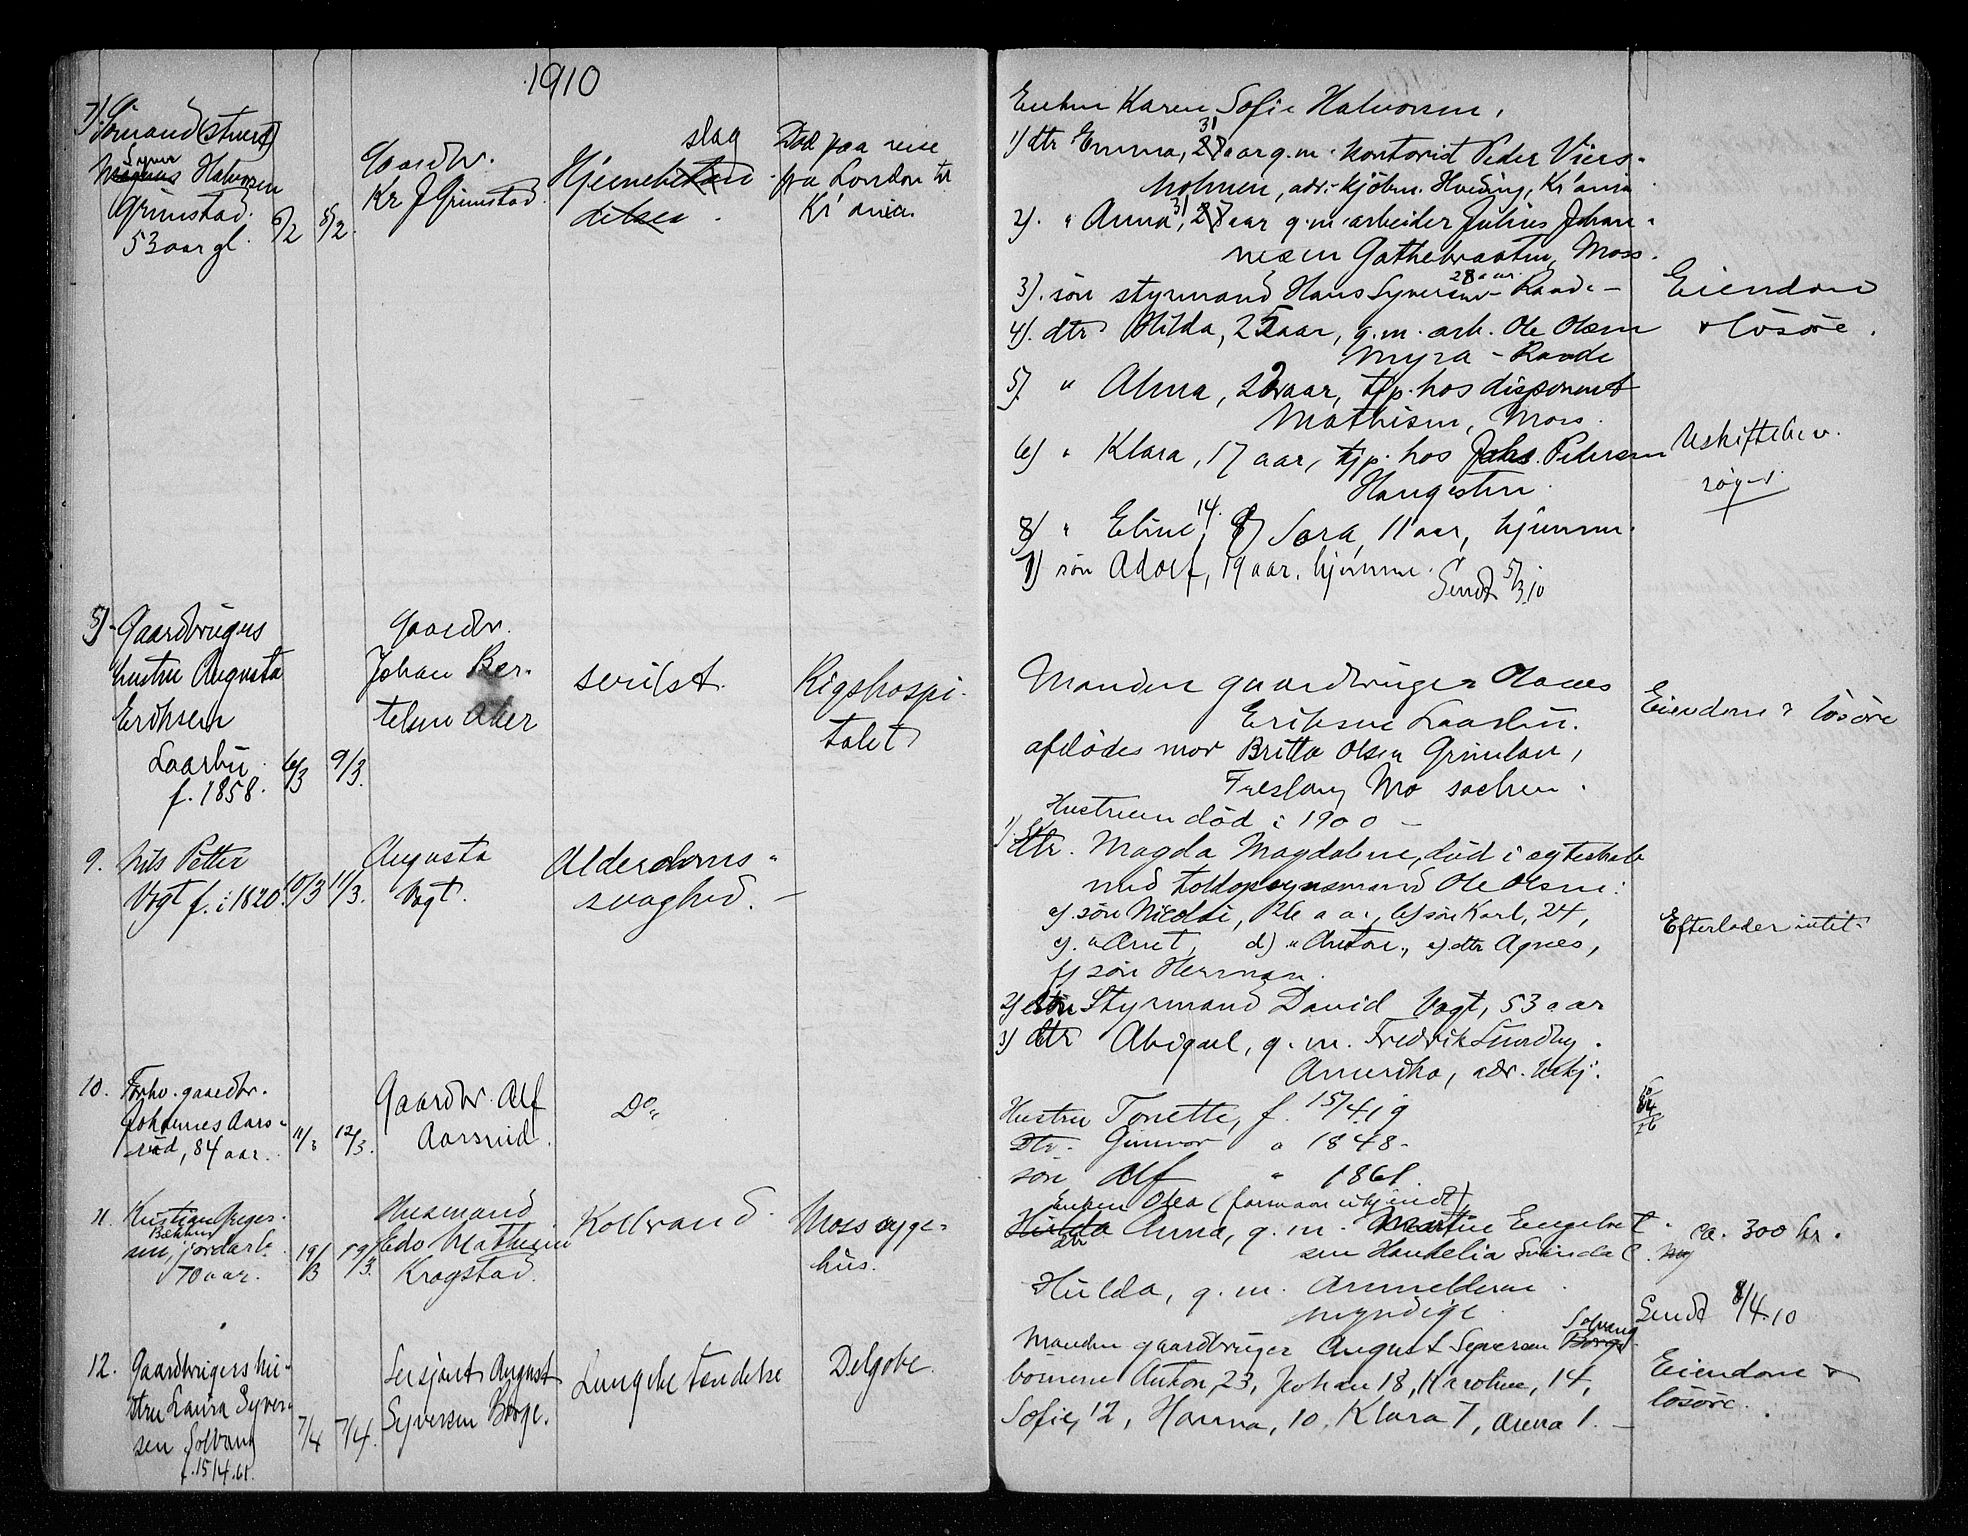 1910
7) Sømand (stuert)
Syver
Magnus Halvorsen
Grimstad.
53 aar gl. 6/2 8/2.
Gaardbr.
Kr J Grimstad
slag
Hjernebetæn
delsen
Død paa reise
fra London til
Kr'ania.
Enken Karen Sofie Halvorsen,
31
1) dtr Emma, 27 aar g.m. kontorist Peder Viers-
holmen, adr. Kjøbm. Hveding, Kr'ania
31
2). " Anna, 27 aar g.m. arbeider Julius Johan-
nesen Gathebraaten, Moss.
28 aar.
3). søn styrmand Hans Syversen - Raade -
4). dtr Hilda, 25 aar, g.m. arb. Ole Olsen
Myra - Raade
5). " Alma, 22 aar, tjp. hos disponent
Mathisen, Moss.
6) " Klara, 17 aar, tjp. hos Johs. Petersen
Haugesten
8) " Eline, 14. 9) Sara, 11 aar, hjemme.
7) søn Adolf, 19 aar. hjemme.
Sendt 5/3 10
Eiendom
& løsøre.
Uskiftebev.
søges
8) Gaardbrugers
hustru Augusta
Eriksen
Laarbu
f. 1858. 6/3 9/3.
Gaardbr.
Johan Ber-
telsen Aker
svulst.
Rigshospi-
talet
Manden gaardbruger Olaves
Eriksen Laarbu.
afdødes mor Britta Olsen Grimlan,
Treslong Mo sochen.
Eiendom & løsøre
9. Nils Petter
Vogt f. i 1820. 10/3 11/3.
Augusta
Vogt.
Alderdoms-
svaghed. -
Hustruen død i 1900 -
1) dtr. Magda Magdalene, død i ægteskab
med toldopsynsmand Ole Olsen:
a) søn Nicolai, 26 aar, b) søn Karl, 24,
c). " Anet, d) " Anton., e) dtr Agnes,
f) søn Herman.
2) søn Styrmand David Vogt, 53 aar
3) dtr Abigael, g.m. Fredrik Sundby.
Amerika, adr. Ukj.
Efterlader intet.
10. Forhv. gaardbr.
Johannes Aars-
rud, 84 aar. 11/3 12/3.
Gaardbr. Alf
Aarsrud.
Do "
Hustru Tonette, f. 15/4.19
Dtr. Gunvor " 1848-
søn Alf " 1861.
11. Kristian Greger-
Bakken
sen, jordarb.
70 aar. 19/3 19/3.
Husmand
Edv Mathisen
Krogstad.
Koldbrand.
Moss syge-
hus.
Enken Olea (formaaen ukjendt),
Hulda Anna, g.m. Martin Engebret-
dtr
sen Haukelia Svindal.
Hulda, g.m. Anmelderen
myndige.
ca. 300 kr.
Sendt 8/4 10
12. Gaardbrugers hu-
stru Laura Syver-
sen Solvang
f. 15/4.61. 7/4 7/4.
Sersjant August
Syversen Borge.
Lungebetændelse
Delgobe.
Solvang
Manden gaardbruger August Syversen Borge.
børnene Anton, 23, Johan 18, Karoline, 14,
Sofie, 12, Hanna, 10, Klara 7, Anna 1. -
Eiendom &
løsøre.